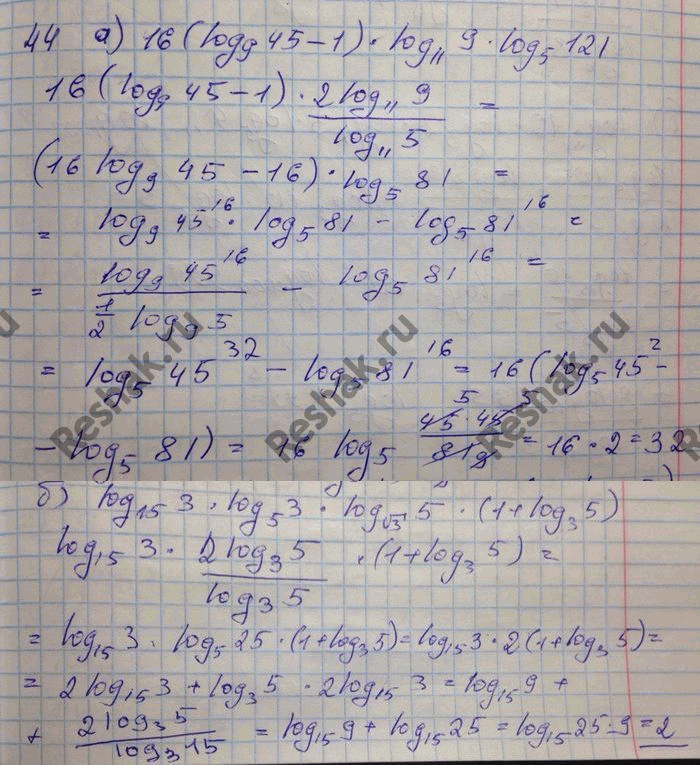 44 а) 16(log₉ 45 − 1) · log₁₁ 9 · log₅ 121
16(log₉ 45 − 1) · (2 log₁₁ 9)/(log₁₁ 5) =
(16 log₉ 45 − 16) · log₅ 81 =
= log₉ 45¹⁶ · log₅ 81 − log₅ 81¹⁶ =
= (log₉ 45¹⁶)/(1/2 log₉ 5) − log₅ 81¹⁶ =
= log₅ 45³² − log₅ 81¹⁶ = 16(log₅ 45² −
− log₅ 81) = 16 log₅ (45 · 45)/(81) = 16 · 2 = 32
б) log₁₅ 3 · log₅ 3 · log_√3 5 · (1 + log₃ 5)
log₁₅ 3 · (2 log₃ 5)/(log₃ 5) · (1 + log₃ 5) =
= log₁₅ 3 · log₅ 25 · (1 + log₃ 5) = log₁₅ 3 · 2(1 + log₃ 5) =
= 2 log₁₅ 3 + log₃ 5 · 2 log₁₅ 3 = log₁₅ 9 +
+ (2 log₃ 5)/(log₃ 15) = log₁₅ 9 + log₁₅ 25 = log₁₅ 25 · 9 = 2
Reshak.ru
Reshak.ru
Reshak.ru